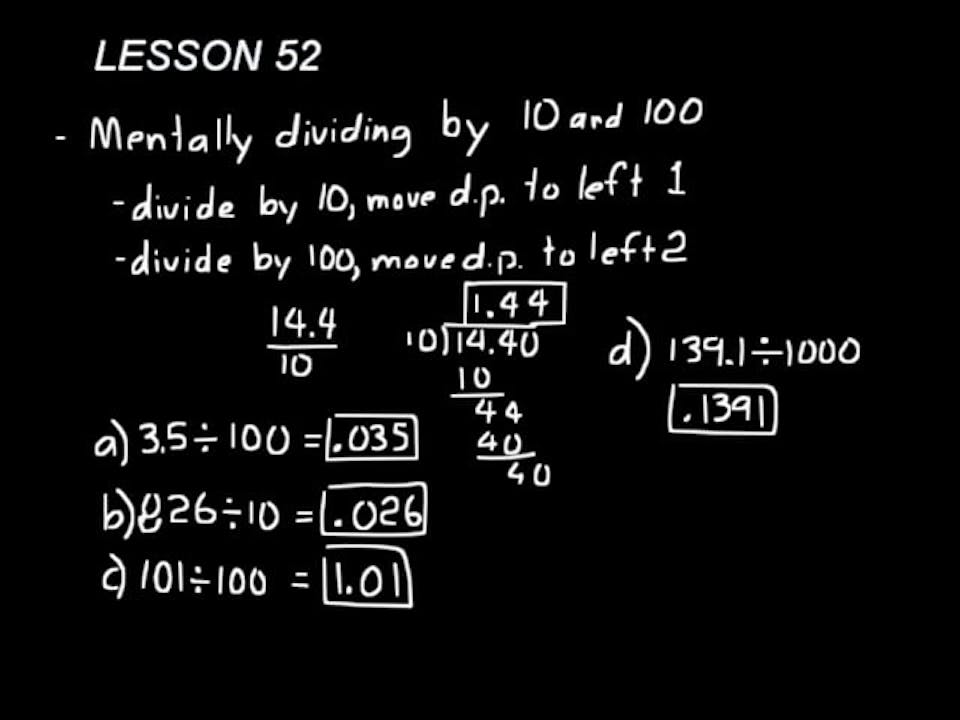 LESSON 52
- Mentally dividing by 10 and 100
- divide by 10, move d.p. to left 1
- divide by 100, move d.p. to left 2
14.4
10
1.44
10)14.40
10
44
40
40
a) 3.5 ÷ 100 = .035
b) 26 ÷ 10 = .026
c) 101 ÷ 100 = 1.01
d) 139.1 ÷ 1000
.1391